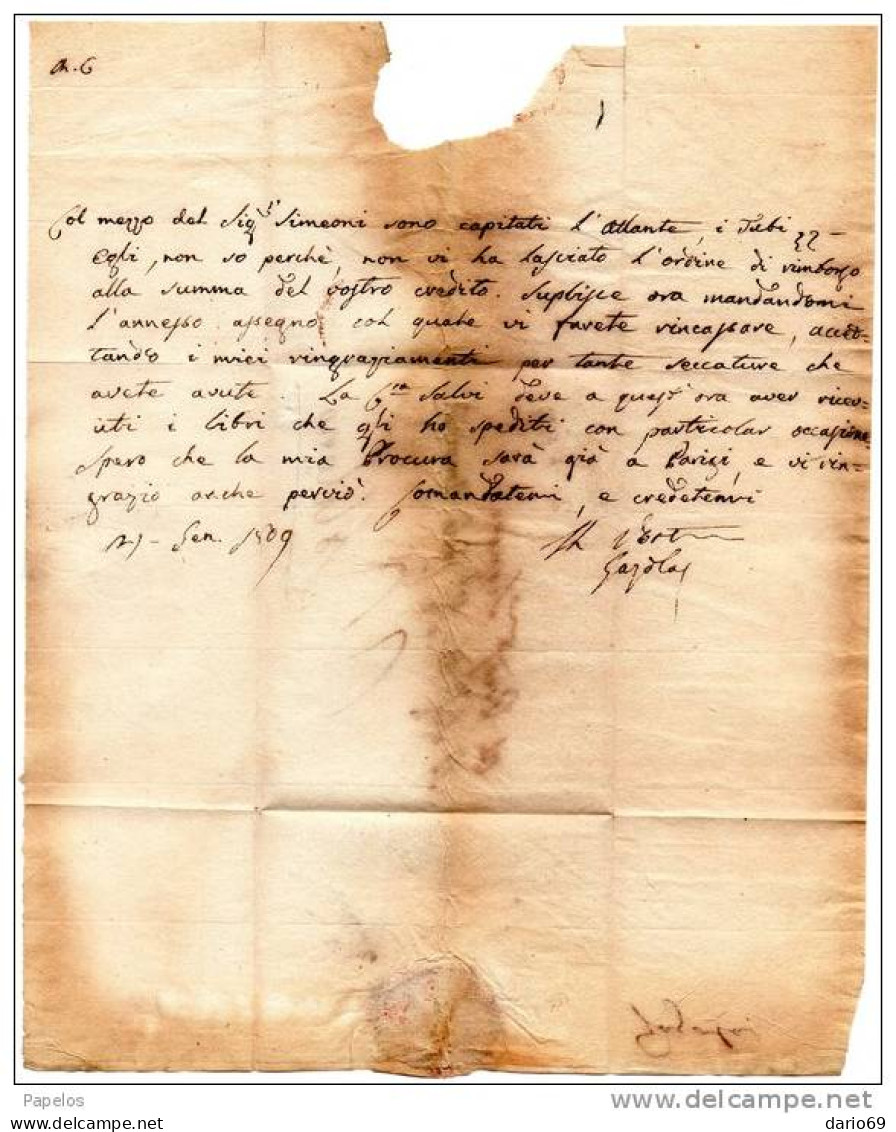 A. C
Col mezzo del Sig.r Simeoni sono capitati l'Atlante, i Tubi
Egli, non so perchè, non vi ha lasciato l'ordine di rimborso
alla summa del vostro credito. Supplisce ora mandandomi
l'annesso assegno col quale vi farete rincassare, accet-
tando i miei ringraziamenti per tante seccature che
avete avute. La C.ssa Salvi deve a quest'ora aver ricev-
uti i libri che gli ho spediti con particolar occasione
spero che la mia Procura sarà già a Parigi, e vi rin-
grazio anche perciò. Comandatemi, e credetemi
Gen. 1809
Il Vostro
Gazola
Papelos
www.delcampe.net
dario69